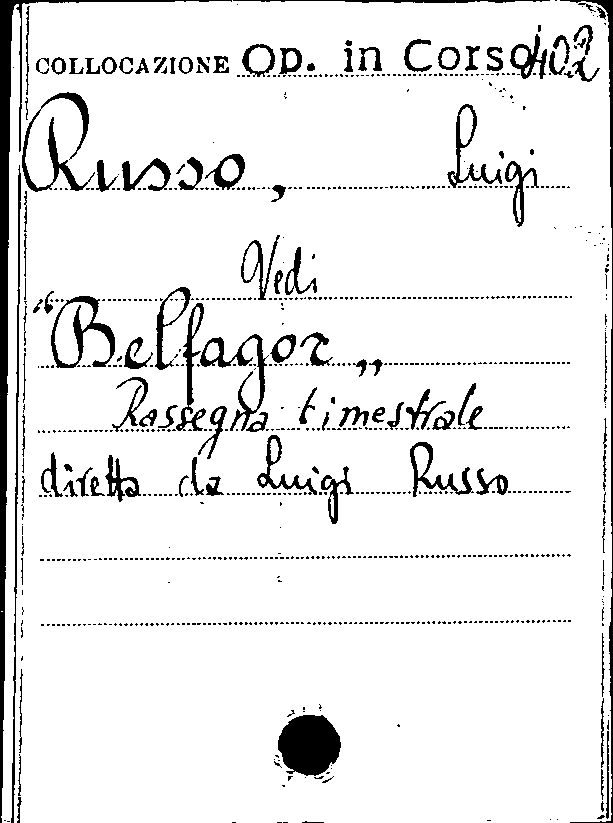 COLLOCAZIONE OP. in Corso 402
Russo, Luigi
Vedi
“Belfagor„
Rassegna bimestrale
diretta da Luigi Russo